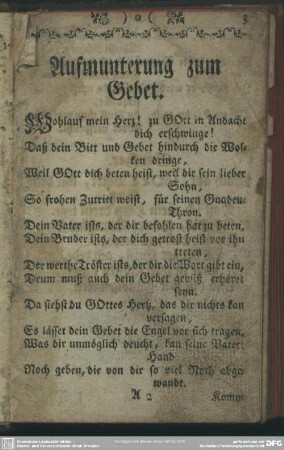 ) o ( 3
Aufmunterung zum
Gebet.
Wohlauf mein Herz! zu GOtt in Andacht
dich erschwinge!
Daß dein Bitt und Gebet hindurch die Wol-
cken dringe,
Weil GOtt dich beten heist, weil dir sein lieber
Sohn,
So frohen Zutritt weist, für seinen Gnaden-
Thron.
Dein Vater ists, der dir befohlen hat zu beten,
Dein Bruder ists, der dich getrost heist vor ihn
treten,
Der werthe Tröster ists, der dir die Wort gibt ein,
Drum muß auch dein Gebet gewiß erhöret
seyn.
Da siehst du GOttes Hertz, das dir nichts kan
versagen,
Es lässet dein Gebet die Engel vor sich tragen,
Was dir unmöglich deucht, kan seine Vater-
Hand
Noch geben, die von dir so viel Noth abge-
wandt.
A 2 Komm